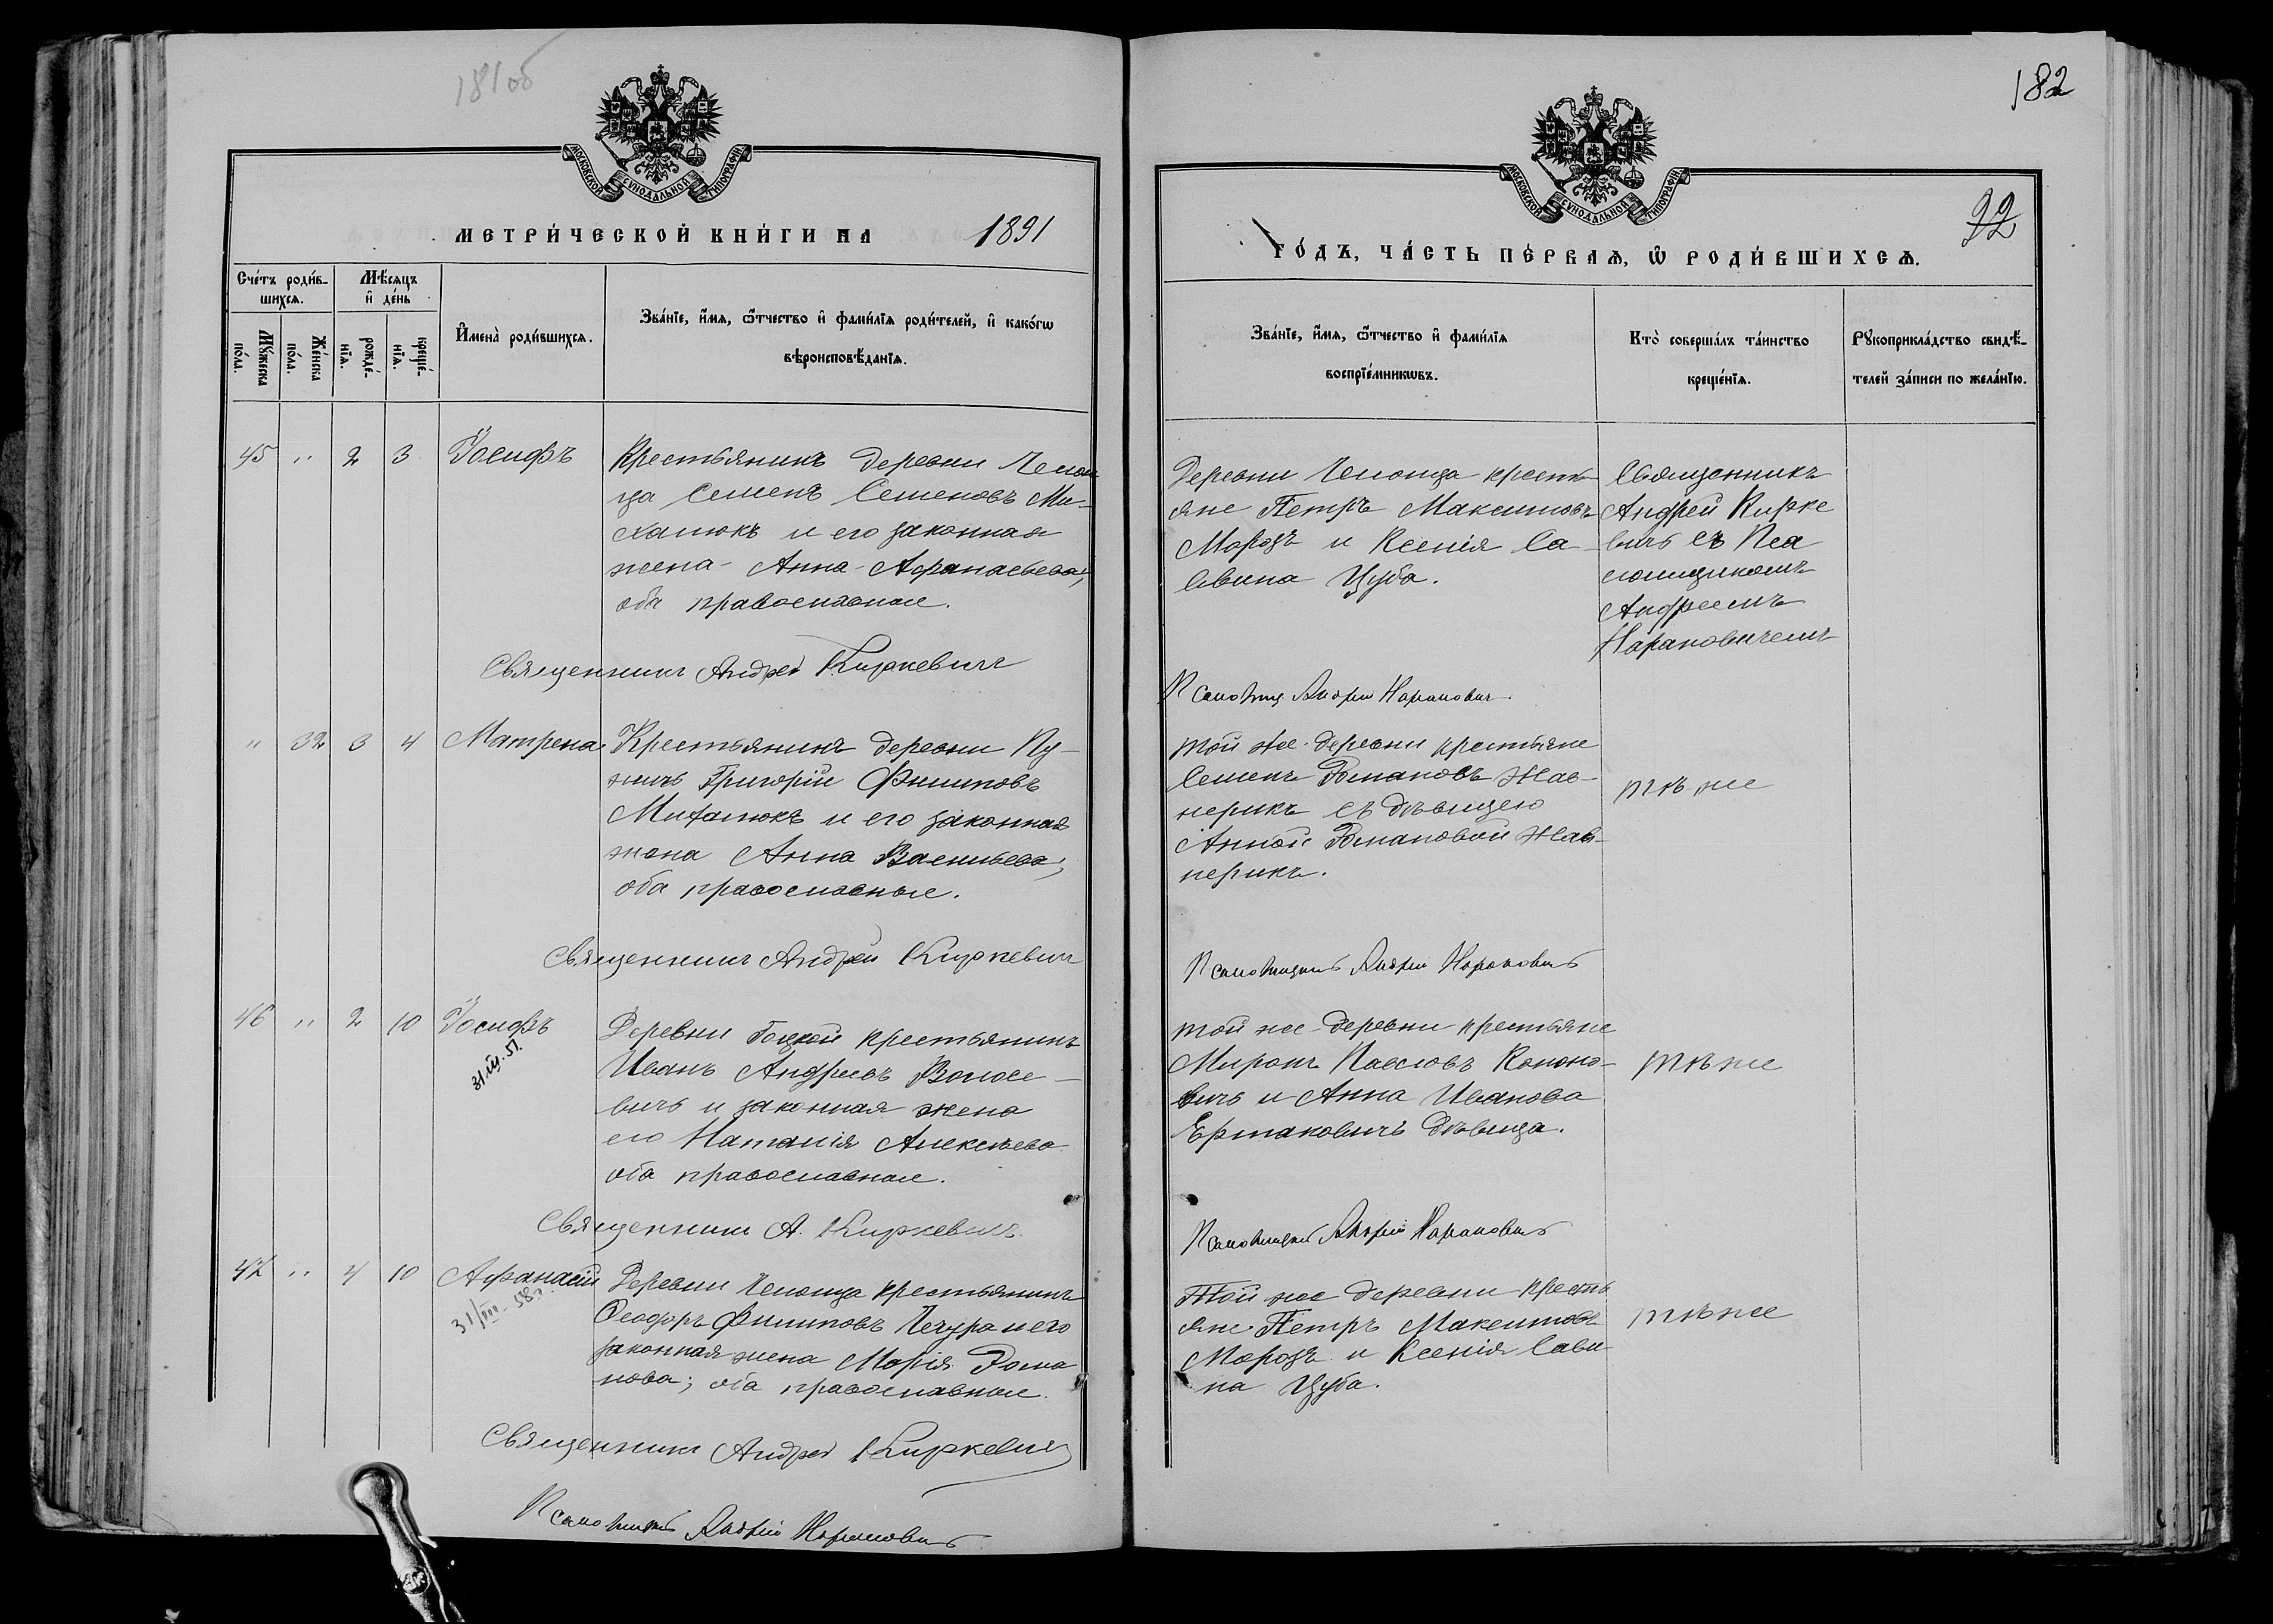 181об
МОСКОВСКОЙ СУНОДАЛЬНОЙ ТИПОГРАФІИ
МЕТРИ́ЧЕСКОЙ КНИ́ГИ НА 1891
Сче́тъ роди́в-
шихсѧ.
Мѣ́сѧцъ
и҆ де́нь
Мꙋ́жеска
по́ла.
Же́нска
по́ла.
рожде́-
нїѧ.
креще́-
нїѧ.
И҆мена̀ роди́вшихсѧ.
Зва́нїе, и҆́мѧ, ѿ́тчество и҆ фами́лїѧ роди́телей, и҆ како́гѡ
вѣроисповѣ́данїѧ.
45 " 2 3 Іосифъ Крестьянинъ деревни
ца Семенъ Семеновъ Ми-
халюкъ и его законная
жена Анна Афанасьева;
оба православные.
Священникъ Андрей Киркевичъ
" 32 3 4 Матрена Крестьянинъ деревни Пу-
жичъ Григорій Филиповъ
Михалюкъ и его законная
жена Анна Васильева;
оба православные.
Священникъ Андрей Киркевичъ
46 " 2 10 Іосифъ Деревни Гоцкой крестьянинъ
31.III.57. Иванъ Андреевъ Волосе-
вичъ и законная жена
его Наталія Алексѣева
оба православные.
Священникъ А. Киркевичъ
47 " 4 10 Афанасій Деревни крестьянинъ
31/III-58г. Ѳеодоръ Филиповъ Печура и его
законная жена Марія Рома
нова; оба православные.
Священникъ Андрей Киркевичъ
Псаломщикъ Андрей Наранович
182
МОСКОВСКОЙ СУНОДАЛЬНОЙ ТИПОГРАФІИ
22
ГО́ДЪ, ЧА́СТЬ ПЕ́РВАѦ, Ѡ҆ РОДИ́ВШИХСѦ.
Зва́нїе, и҆́мѧ, ѿ́тчество и҆ фами́лїѧ
воспрїе́мникѡвъ.
Кто̀ соверша́лъ та́инство
креще́нїѧ.
Рꙋкоприкла́дство свидѣ́-
телей за́писи по жела́нїю.
Деревни кресть
яне Петръ Максимовъ
Морозъ и Ксенія Са-
вина Цуба.
Священникъ
Андрей Кирке
вичъ съ Пса
ломщикомъ
Андреемъ
Нарановичемъ
Псаломщ Андрей Наранович
той же деревни крестьяне
Семенъ Романовъ Жав-
нерикъ съ дѣвицею
Анной Романовой Жав-
нерикъ.
тѣ же
Псаломщикъ Андрей Наранович
той же деревни крестьяне
Миронъ Павловъ Кононо-
вичъ и Анна Иванова
Ермаковичъ дѣвица.
тѣ же
Псаломщикъ Андрей Наранович
Той же деревни кресть
яне Петръ Максимовъ
Морозъ и Ксенія Сави
на Цуба.
тѣ же